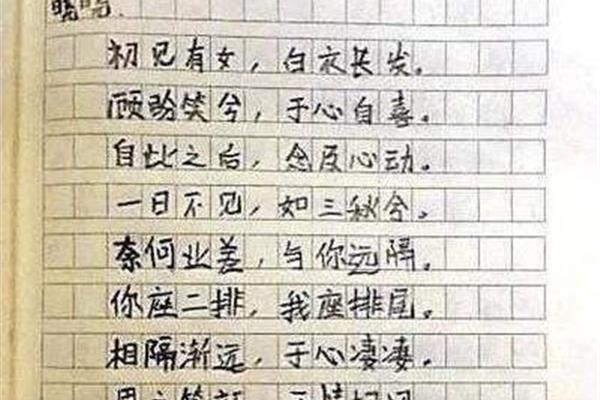 晓晓.
初见有女，白衣长发。
顾盼笑兮，于心自喜。
自此之后，念及心动。
一日不见，如三秋兮。
奈何业差，与你远隔。
你座二排，我座排尾。
相隔渐远，于心凄凄。